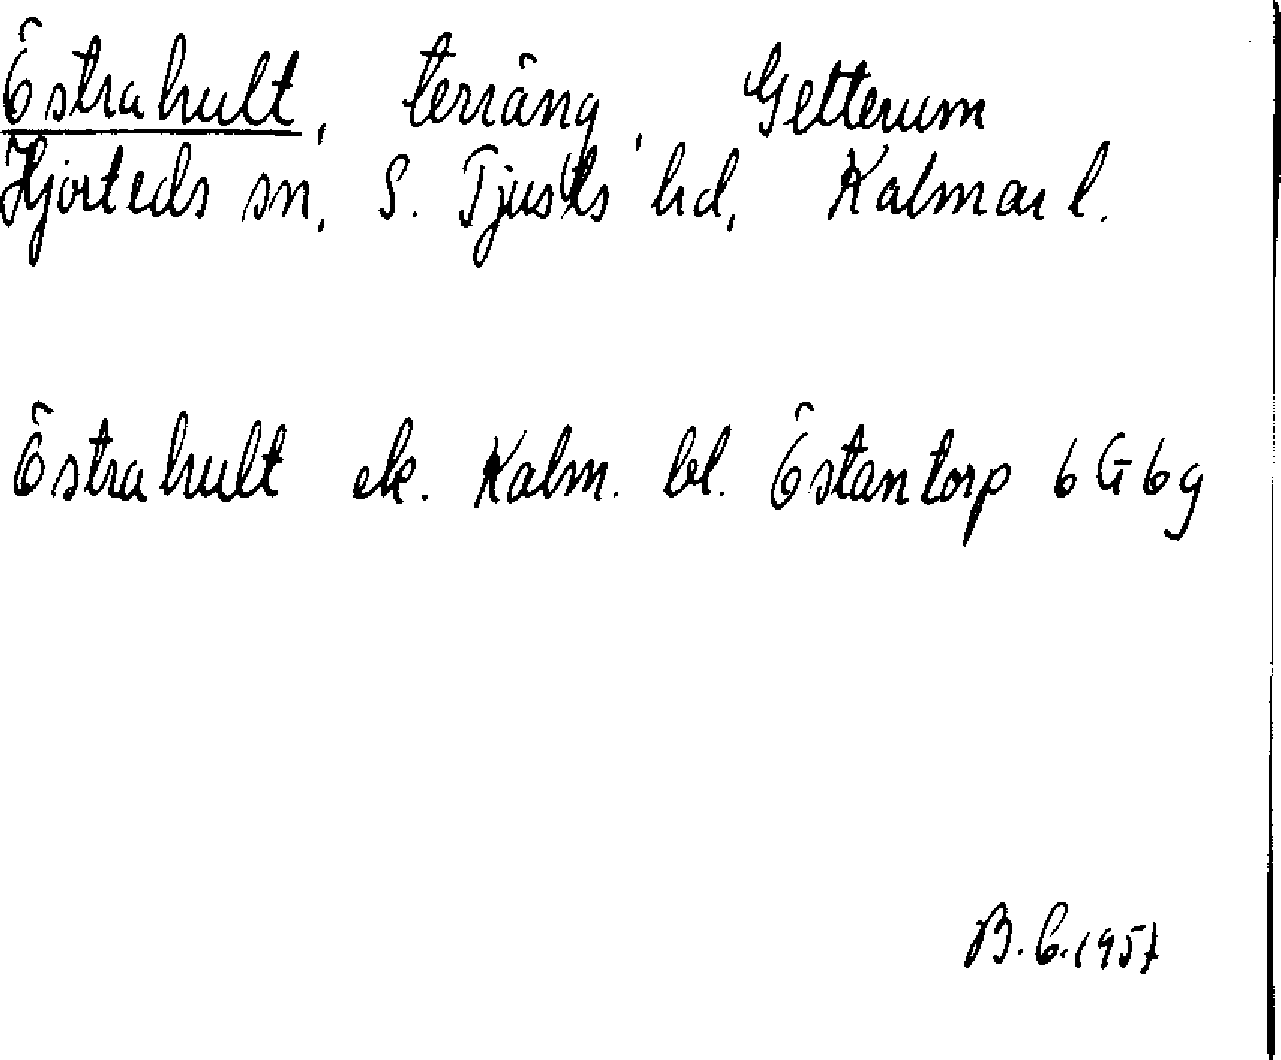 Östrahult, terräng, Getterum
Hjorteds sn, S. Tjusts hd, Kalmar l.
Östrahult ek. Kalm. bl. Östantorp 6 G 6 g
B. C. 1957